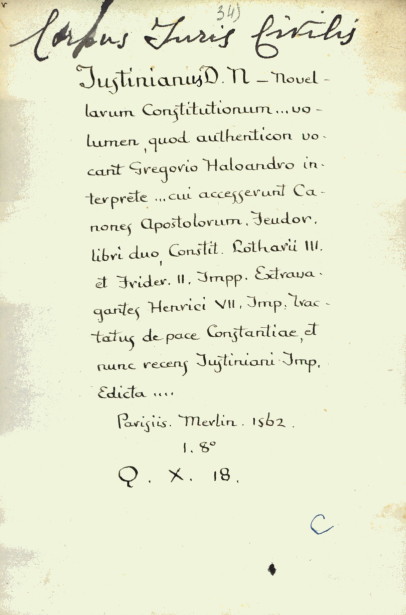 34)
Corpus Juris Civilis
Justinianus D. N – Novel-
larum Constitutionum ... vo-
lumen, quod authenticon vo-
cant Gregorio Haloandro in-
terprete ... cui accesserunt Ca-
nones Apostolorum. Feudor.
libri duo, Constit. Lotharii III.
et Frider. II. Impp. Extrava-
gantes Henrici VII. Imp. Trac-
tatus de pace Constantiae, et
nunc recens Justiniani Imp.
Edicta ....
Parisiis. Merlin. 1562.
1. 8°
Q. X. 18.
C